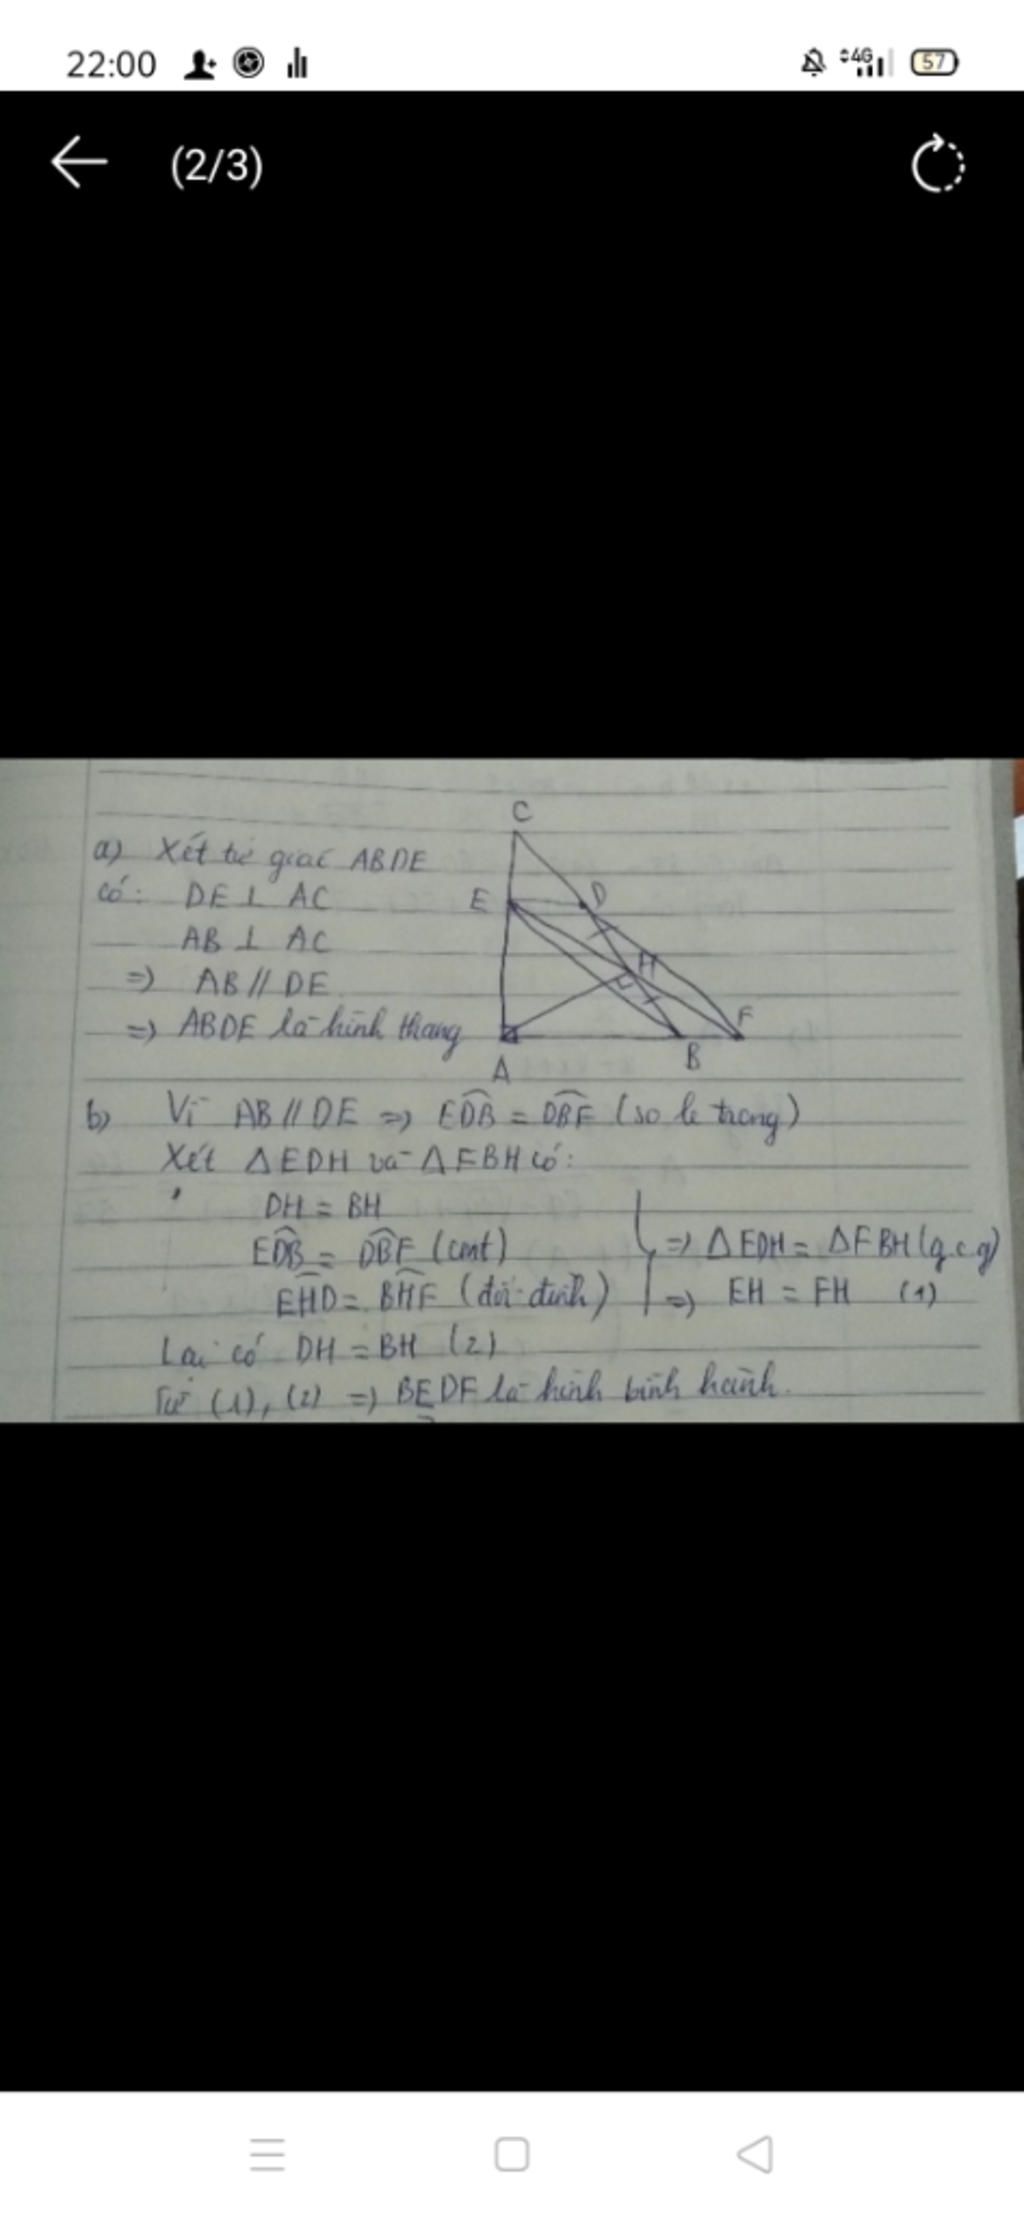 22:00
4G
57
(2/3)
C
a) Xét tứ giác ABDE
có: DE ⊥ AC
E
D
AB ⊥ AC
H
=) AB // DE
=) ABDE là hình thang
F
A
B
b) Vì AB // DE =) EDB̂ = DBF̂ (so le trong)
Xét ΔEDH và ΔFBH có:
DH = BH
EDB̂ = DBF̂ (cmt)
=) ΔEDH = ΔFBH (g.c.g)
EHD̂ = BHF̂ (đối đỉnh)
=) EH = FH (1)
Lại có DH = BH (2)
Từ (1), (2) =) BEDF là hình bình hành.